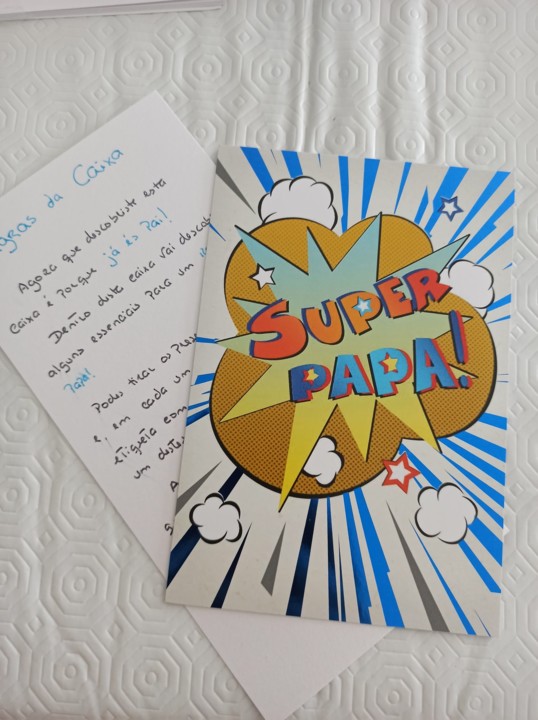 da Caixa
Agora que descobriste esta
Caixa é porque já és Pai!
Dentro desta caixa vai
alguns essenciais para um
Papá!
Podes tirar os
e em cada um
etiqueta com
um destes
SUPER
PAPA!